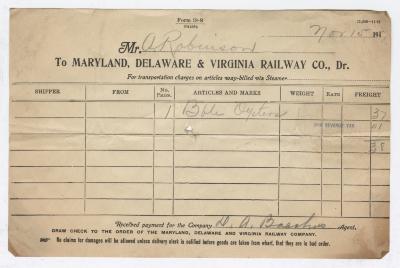 Form D-8
Nov 15 191
Mr. A Robinson
To MARYLAND, DELAWARE & VIRGINIA RAILWAY CO., Dr.
For transportation charges on articles way-billed via Steamer
SHIPPER FROM No. Pkgs. ARTICLES AND MARKS WEIGHT RATE FREIGHT
1 Bble Oysters 37
WAR REVENUE TAX 01
38
Received payment for the Company D. A. Agent.
DRAW CHECK TO THE ORDER OF THE MARYLAND, DELAWARE AND VIRGINIA RAILWAY COMPANY.
No claims for damages will be allowed unless delivery clerk is notified before goods are taken from wharf, that they are in bad order.